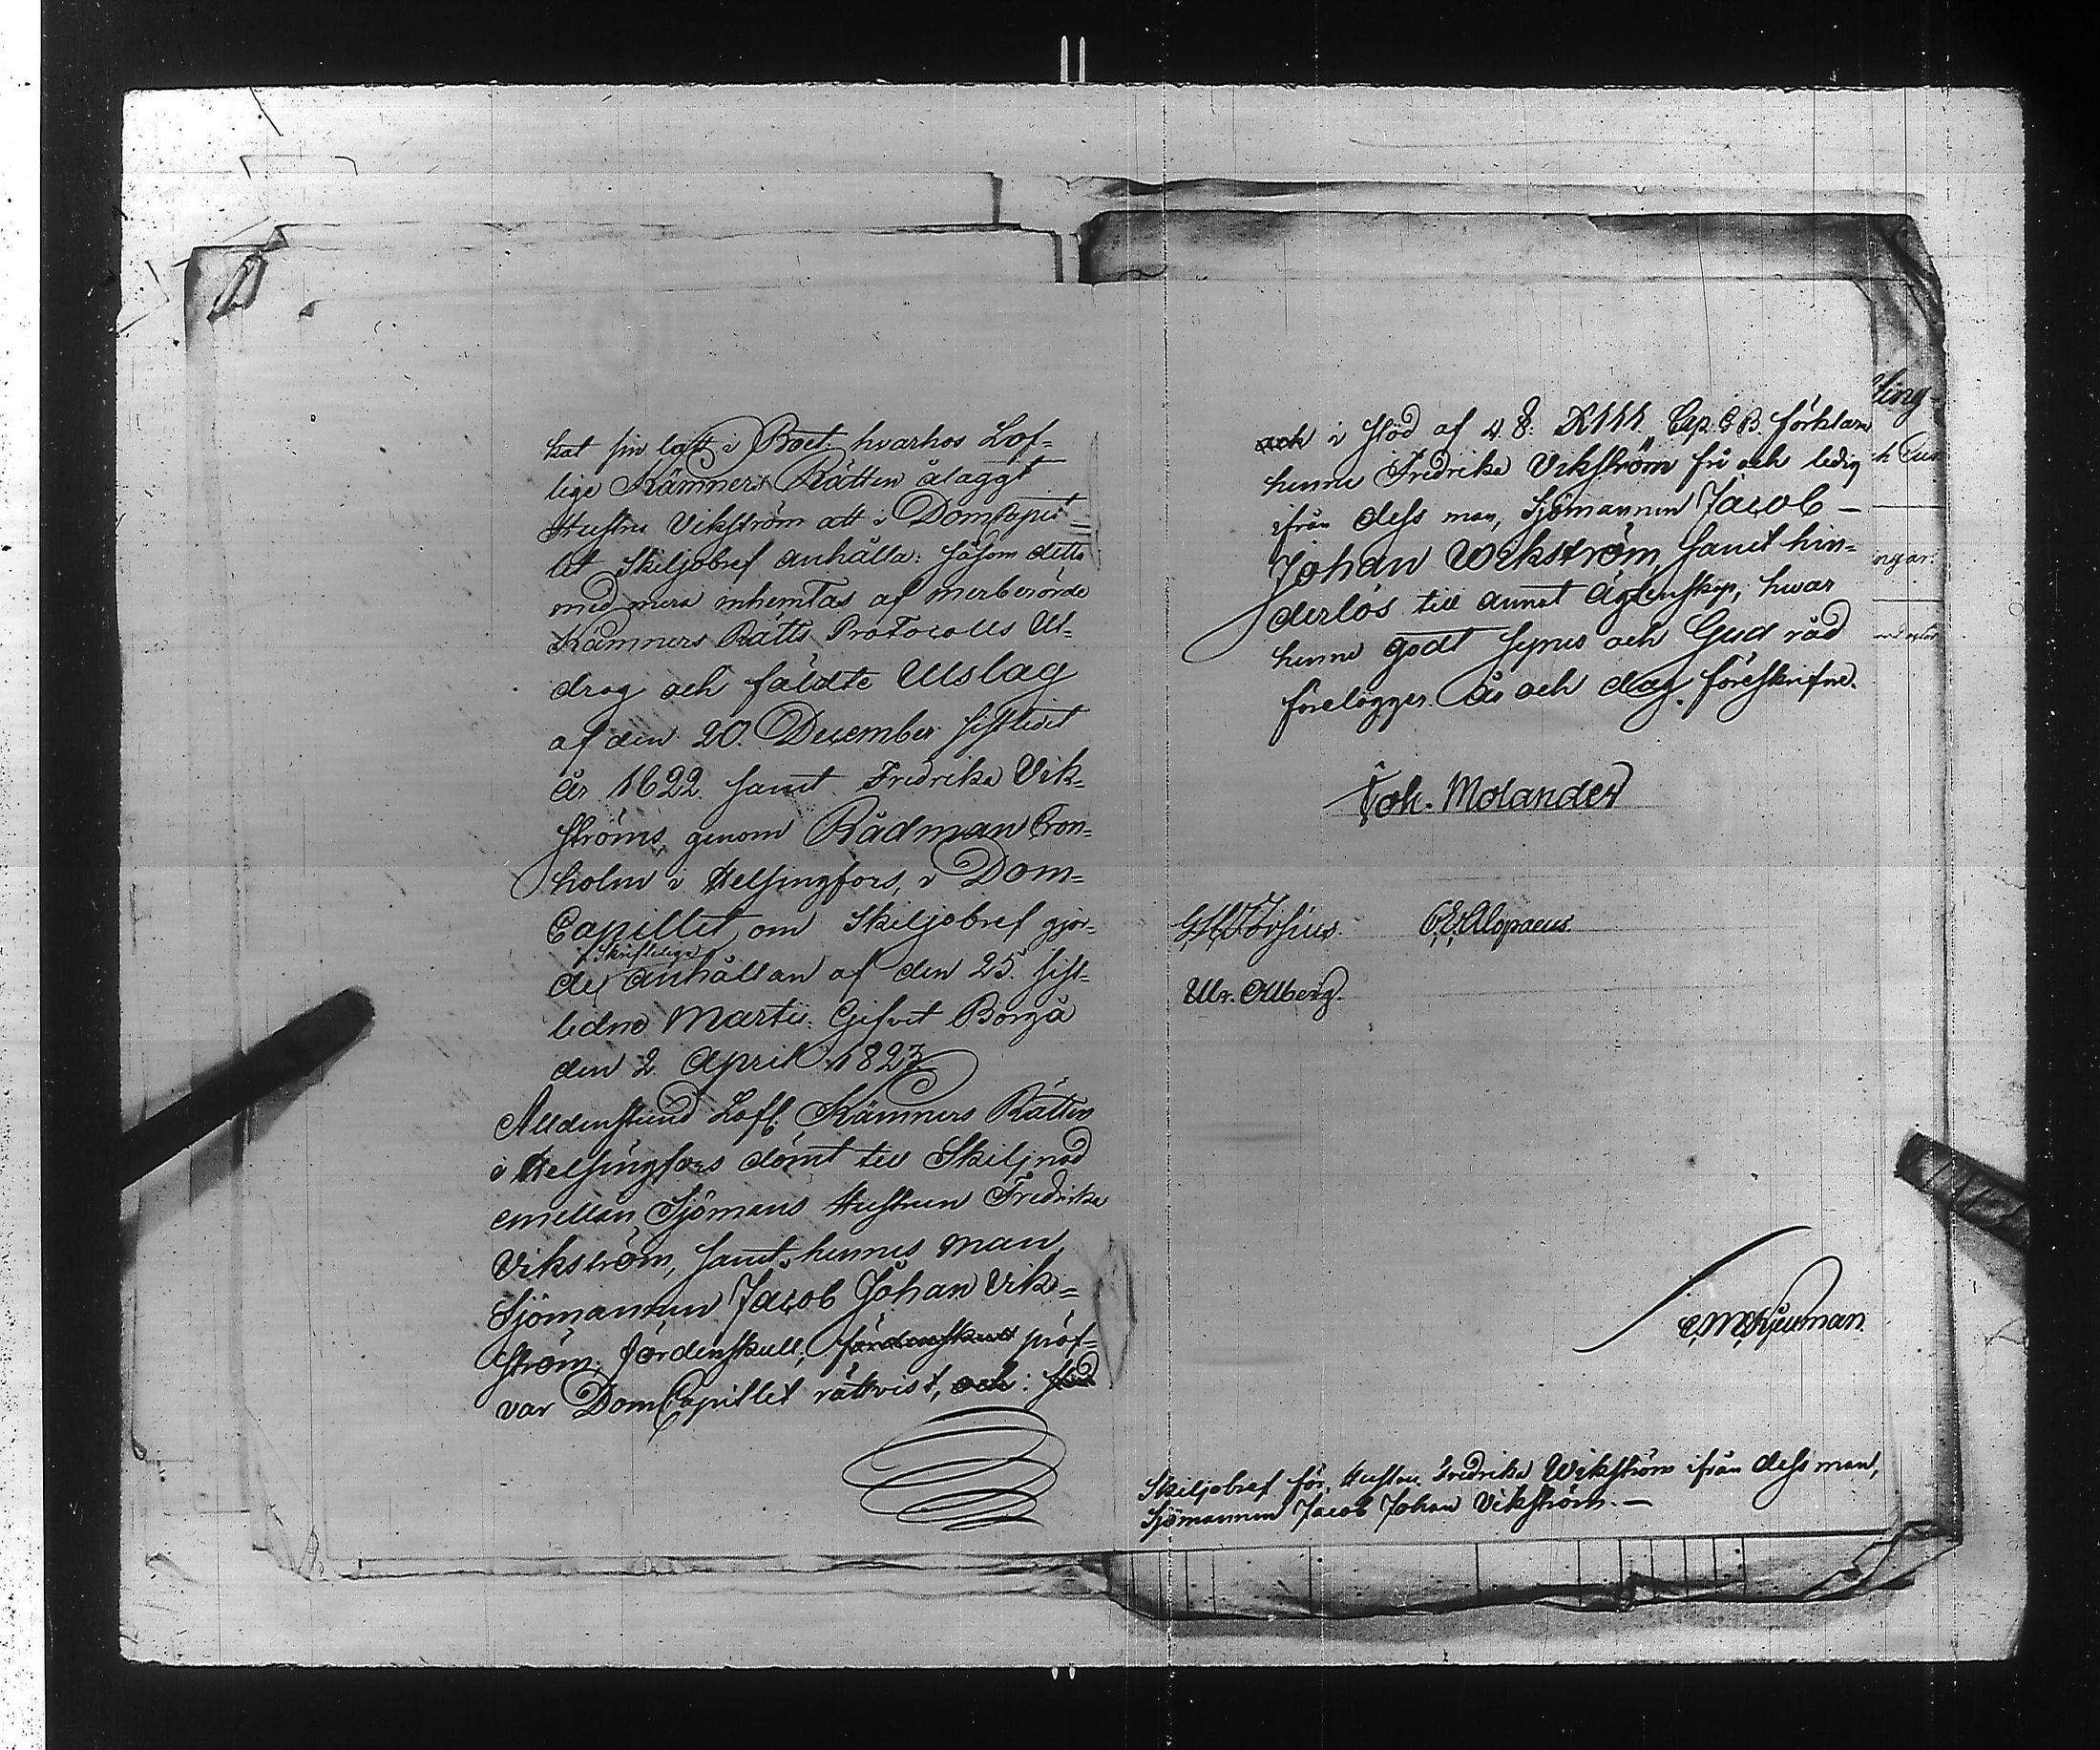 kat sin lott i Boet. hvarhos Lof-
lige Kämners Rätten ålaggt
Hustru Vikström att i DomCapit-
let Skiljobref anhålla: såsom detta
med mera inhemtas af merberörde
Kämners Rätts Protocolls Ut-
drag och fäldte Utslag
af den 20. December sistledit
år 1622. samt Fredrika Vik-
ströms, genom Rådman Cron-
holm i Helsingfors, i Dom-
Capitlet om Skiljobref gjor-
Skriftelige
de anhållan af den 25. sist-
ledne Martii. Gifvet Borgå
den 2. April 1823
Alldenstund Lofl. Kämners Rätten
i Helsingfors dömt till Skilj nad
emellan Sjömans Hustrun Fredrika
Vikström, samt hennes man
Sjömannen Jacob Johan Vik-
ström; fördenskull, fördenskull pröf-
var DomCapitlet rättvist, och: stöd
och i stöd af 4. §: XIII. Cap. G.B. förklara
henne Fredrika Vikström fri och ledig
ifrån dess man, Sjömannen Jacob
Johan Wikström, samt hin-
derlös till annat ägtenskap, hvar
henne godt synes och Gud råd
förelägger. År och dag föreskrifne.
Joh. Molander
C.E. Alopaeus.
Ur. Ollberg.
Skiljobref för, Hustru Fredrika Wikström ifrån dess man,
Sjömannen Jacob Johan Vikström.